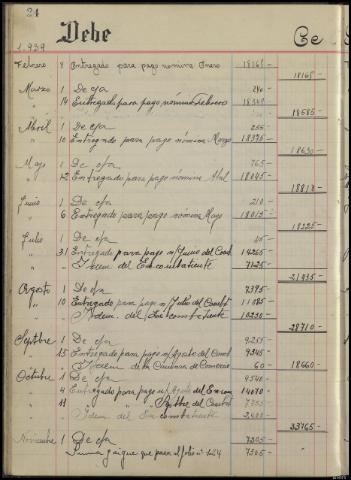 21
Debe
Ce
1.939
Febrero 8 Entregado para pago nómina Enero 18165-
18165-
Marzo 1 De c/a 240-
" 14 Entregado para pago nómina Febrero
18585-
Abril 1 De c/a 255-
" 10 Entregado para pago nómina Marzo 18375-
18630-
Mayo 1 De c/a 765-
" 12 Entregado para pago nómina Abril 18045-
Junio 1 De c/a 210-
" 6 Entregado para pago nómina Mayo 18015-
18225-
Julio 1 De c/a
" 31 Entregado para pago n/ Junio del Comb
" " Idem del Excombatiente
21835-
Agosto 1 De c/a 7395-
" 10 Entregado para pago n/ Julio del Combt 11085-
" Idem. del Excombatiente 10230-
28710-
Septbre 1 De c/a 9255-
" 15 Entregado para pago n/ Agosto del Comb 9345-
" Idem de la Cámara de Comercio 60- 18660-
Octubre 1 De c/a 9540-
" 4 Entregado para pago n/ Agosto del Excom 14070-
" 11 Septbre del Combt
" Idem del Excombatiente
33765-
Noviembre 1 De c/a 7305-
Suma y sigue que pasa al folio nº 124 7305-